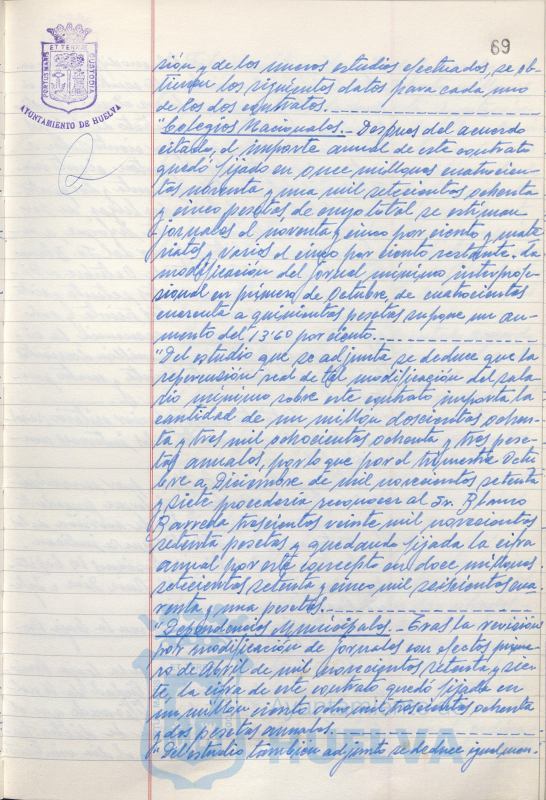 69
PORTUS MARIS ET TERRAE CUSTODIA
AYUNTAMIENTO DE HUELVA
sión y de los nuevos estudios efectuados, se ob-
tienen los siguientes datos para cada uno
de los dos contratos.
"Colegios Nacionales.- Despues del acuerdo
citado, el importe anual de este contrato
quedó fijado en once millones cuatrocien-
tas noventa y una mil setecientas ochenta
y cinco pesetas, de cuyo total se estiman
jornales el noventa y cinco por ciento y mate-
riales y varios el cinco por ciento restante. La
modificación del jornal mínimo interprofe-
sional en primero de Octubre, de cuatrocientas
cuarenta a quinientas pesetas supone un au-
mento del 13'60 por ciento.
"Del estudio que se adjunta se deduce que la
repercusión real de tal modificación del sala-
rio mínimo sobre este contrato importa la
cantidad de un millon doscientas ochen-
ta y tres mil ochocientas ochenta y tres pese-
tas anuales, por lo que por el trimestre Octu-
bre a Diciembre de mil novecientos setenta
y siete procedería reconocer al Sr. Blanco
Barreda trescientas veinte mil novecientas
setenta pesetas y quedando fijada la cifra
anual por este concepto en doce millones
setecientas setenta y cinco mil seiscientas cua-
renta y una pesetas.
"Dependencias Municipales.- Tras la revisión
por modificación de jornales con efectos prime-
ro de Abril de mil novecientos setenta y sie-
te, la cifra de este contrato quedó fijada en
un millon ciento ocho mil trescientas ochenta
y dos pesetas anuales.
"Del estudio tambien adjunto se deduce igualmen-
Ayuntamiento de
HUELVA